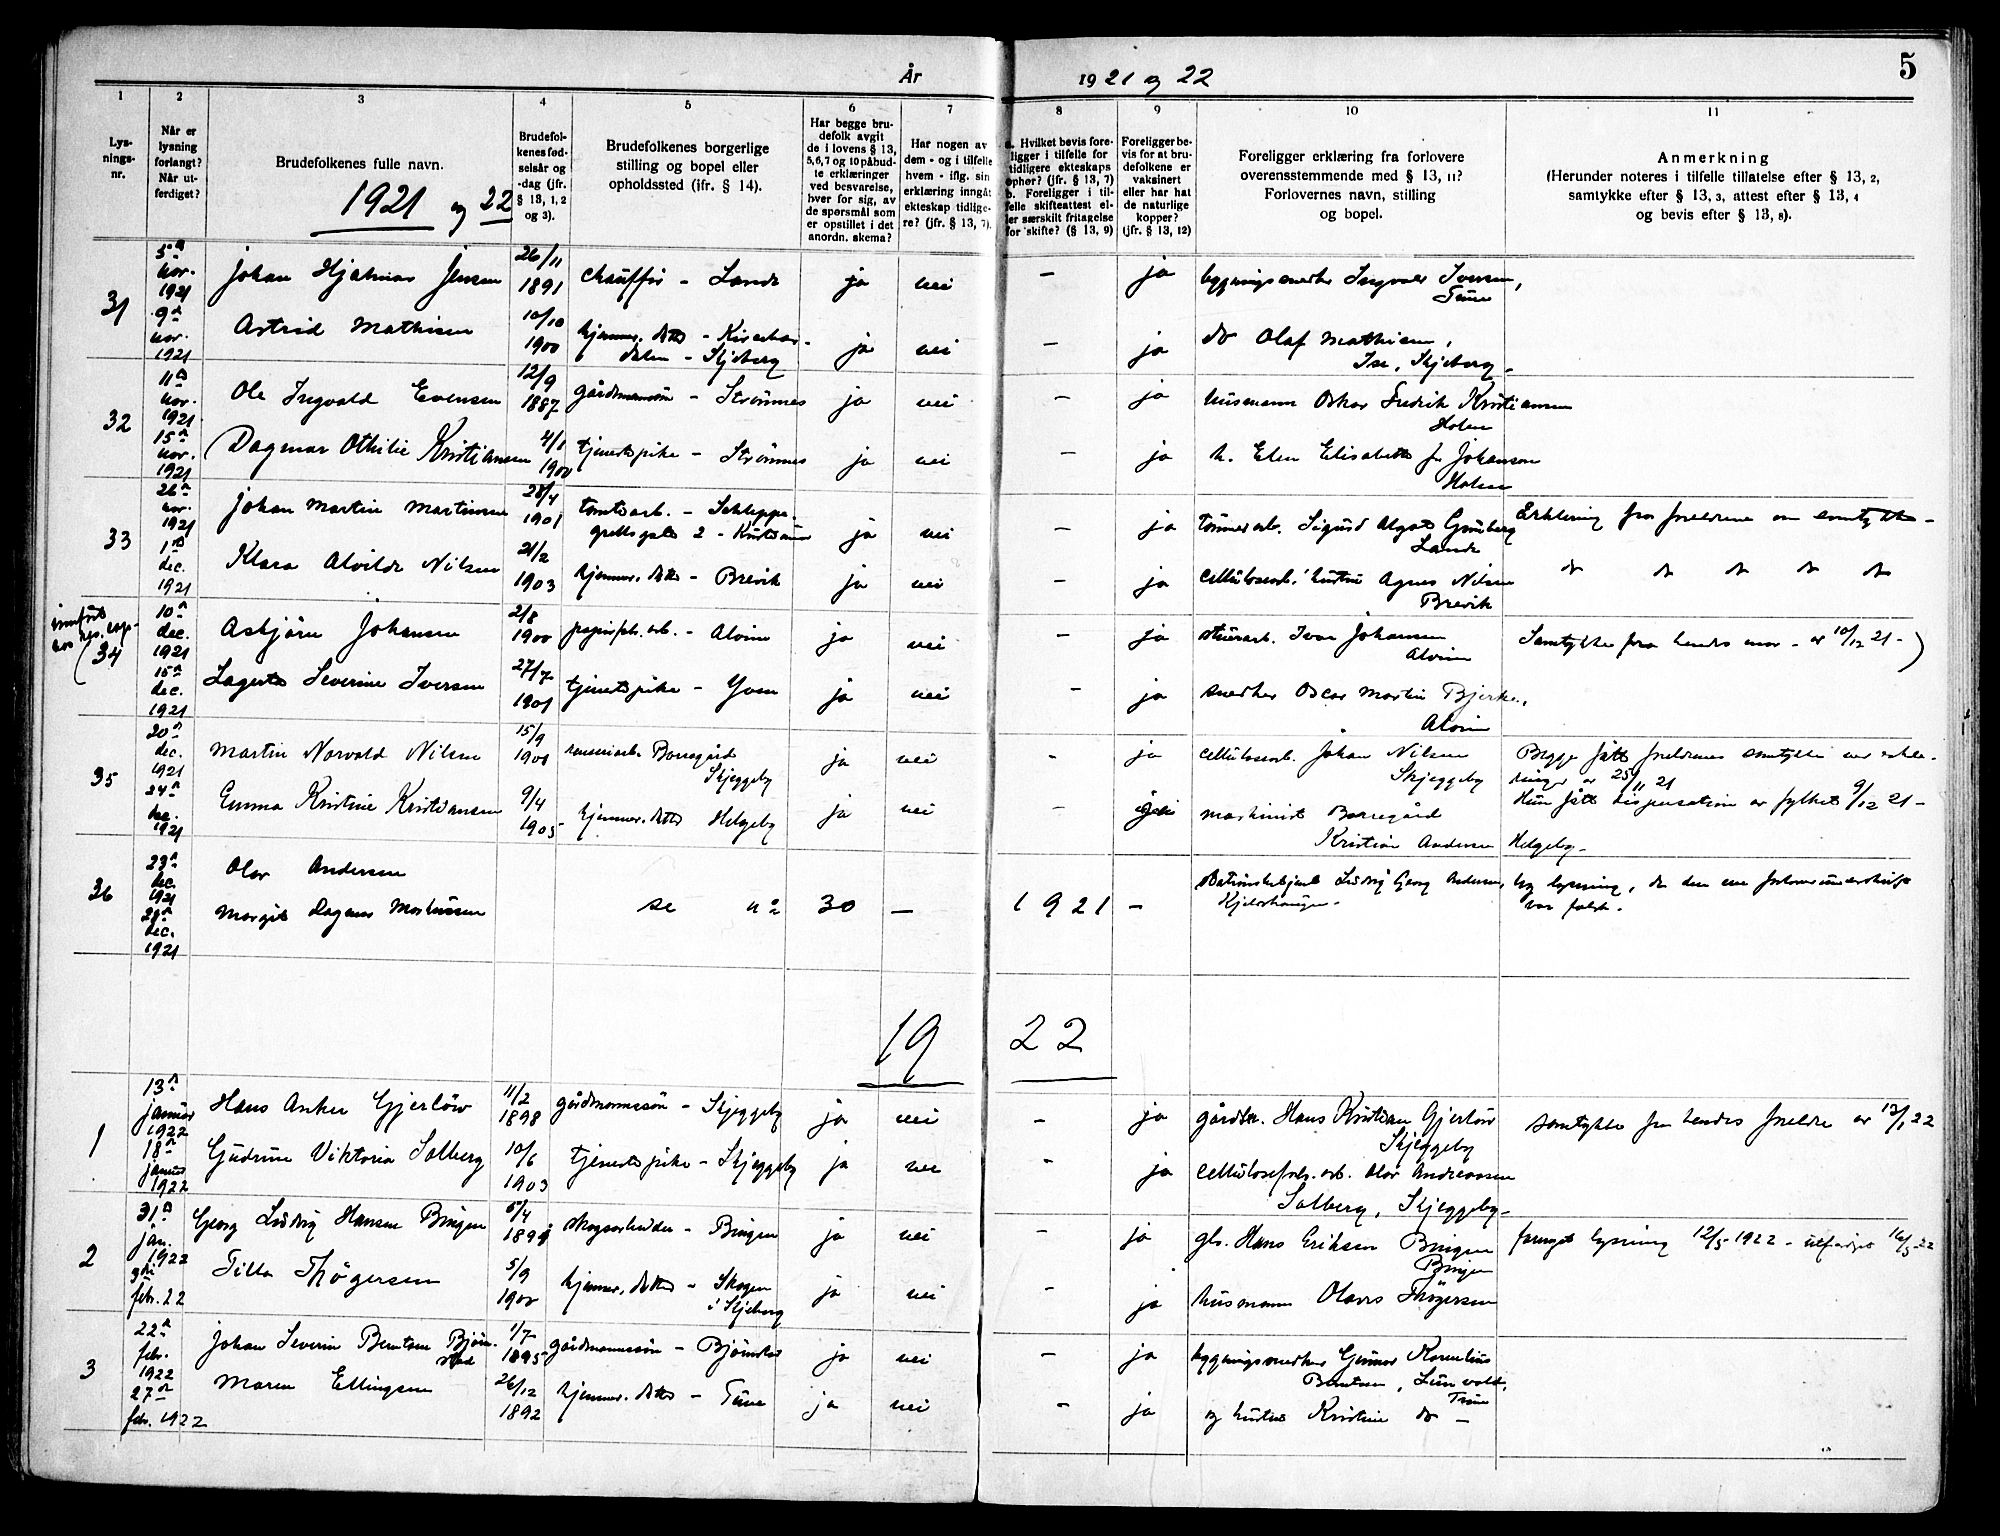 År 1921 og 22
5
1 2 3 4 5 6 7 8 9 10 11
Lysnings-nr.
Når er lysning forlangt? Når utferdiget?
Brudefolkenes fulle navn.
1921 og 22
Brudefolkenes fødselsår og -dag (jfr. § 13, 1, 2 og 3).
Brudefolkenes borgerlige stilling og bopel eller opholdssted (jfr. § 14).
Har begge brudefolk avgit de i lovens § 13, 5,6,7 og 10 påbudte erklæringer ved besvarelse, hver for sig, av de spørsmål som er opstillet i det anordn. skema?
Har nogen av dem - og i tilfelle hvem - iflg. sin erklæring inngåt ekteskap tidligere? (jfr. § 13, 7).
a. Hvilket bevis foreligger i tilfelle for tidligere ekteskaps ophør? (jfr. § 13, 7)
b. Foreligger i tilfelle skifteattest eller særskilt fritagelse for skifte? (§ 13, 9)
Foreligger bevis for at brudefolkene er vaksinert eller har hat de naturlige kopper? (jfr. § 13, 12)
Foreligger erklæring fra forlovere overensstemmende med § 13, 11? Forlovernes navn, stilling og bopel.
Anmerkning
(Herunder noteres i tilfelle tillatelse efter § 13, 2, samtykke efter § 13, 3, attest efter § 13, 4 og bevis efter § 13, 8).
31 5 nov. 1921 Johan Hjalmar Jensen 26/11 1891 chauffør - Lande ja nei - ja bygningssnedker Ingvald Iversen, Tune
9 nov. 1921 Astrid Mathisen 10/10 1900 hjemmev. datter - dalen - Skjeberg ja nei - ja do Olaf Mathisen, Ise, Skjeberg -
32 11 nov. 1921 Ole Ingvald Evensen 12/9 1887 gårdmannssøn - Strømnes ja nei - ja husmann Oskar Fredrik Kristiansen Holen
15 nov. 1921 Dagmar Othilie Kristiansen 4/1 1900 tjenestpike - Strømnes ja nei - ja h. Elen Elisabeth f. Johanson Holen
33 26 nov. 1921 Johan Martin Martinsen 28/4 1901 tomtearb. - Schleppegrellsgate 2 - Kristiania ja nei - ja tømmerarb. Sigurd Algot Grønberg Lande Erklering fra foreldrene om samtykke -
1 dec. 1921 Klara Alvilde Nilsen 21/2 1903 hjemmev. datter - Brevik ja nei - ja cellulosearb. hustru Agnes Nilsen Brevik do do do do do
34 10 dec. 1921 Asbjørn Johansen 2/8 1900 papirfab. arb. - Alvim ja nei - ja Ivar Johansen Alvim Samtykke fra hendes mor - av 10/12 21 -
15 dec. 1921 Lagerta Severine Iversen 27/7 1901 tjenestpike - Yven ja nei - ja snedker Oscar Martin Bjerke, Alvim
35 20 dec. 1921 Martin Norvald Nilsen 15/9 1901 Borregård Skjeggeby ja nei - ja cellulosearb. Johan Nilsen Skjeggeby Begge fått foreldrenes samtykke av 25/11 21
24 dec. 1921 Emma Kristine Kristiansen 9/4 1905 hjemmev. datter Helgeby ja nei - ja maskinist Borregård Kristian Andersen Helgeby - Hun fått dispensation av fylket 9/12 21 -
36 29 dec. 1921 Olav Andersen
29 dec. 1921 Margit Dagens Mortensen se no 30 - 1921 - Ludvig Georg Andersen, ny lysning, da den ene forloverunderskrift var falsk.
1922
1 13 januar 1922 Hans Anker Gjerløw 11/2 1898 gårdmannssøn - Skjeggeby ja nei - ja gårdbr. Hans Kristian Gjerløw Skjeggeby samtykke fra hendes foreldre av 13/1 22
18 januar 1922 Gudrun Viktoria Solberg 10/6 1903 tjenestpike - Skjeggeby ja nei - ja cellulosefabr. arb. Olav Andreassen Solberg, Skjeggeby -
2 31 jan. 1922 Georg Ludvig Hansen Bingen 5/4 1899 skogsarbeider - Bingen ja nei - ja gbr. Hans Eriksen Bingen Bingen fornyet lysning 12/5 1922 - utferdiget 16/5 22
febr. 22 Tilla Thøgersen 5/9 1900 hjemmev. datter - Skogen i Skjeberg ja nei - ja husmann Olaves Thøgersen
3 22 febr. 1922 Johan Severin Berntsen Bjørnstad 1/7 1895 gårdmannssøn - Bjørnstad ja nei - ja bygningssnedker Gunnar Kornelius Berntsen, Tune
27 febr. 1922 Maren Ellingsen 26/12 1892 hjemmev. datter - Tune ja nei - ja og hustru Kristine do -